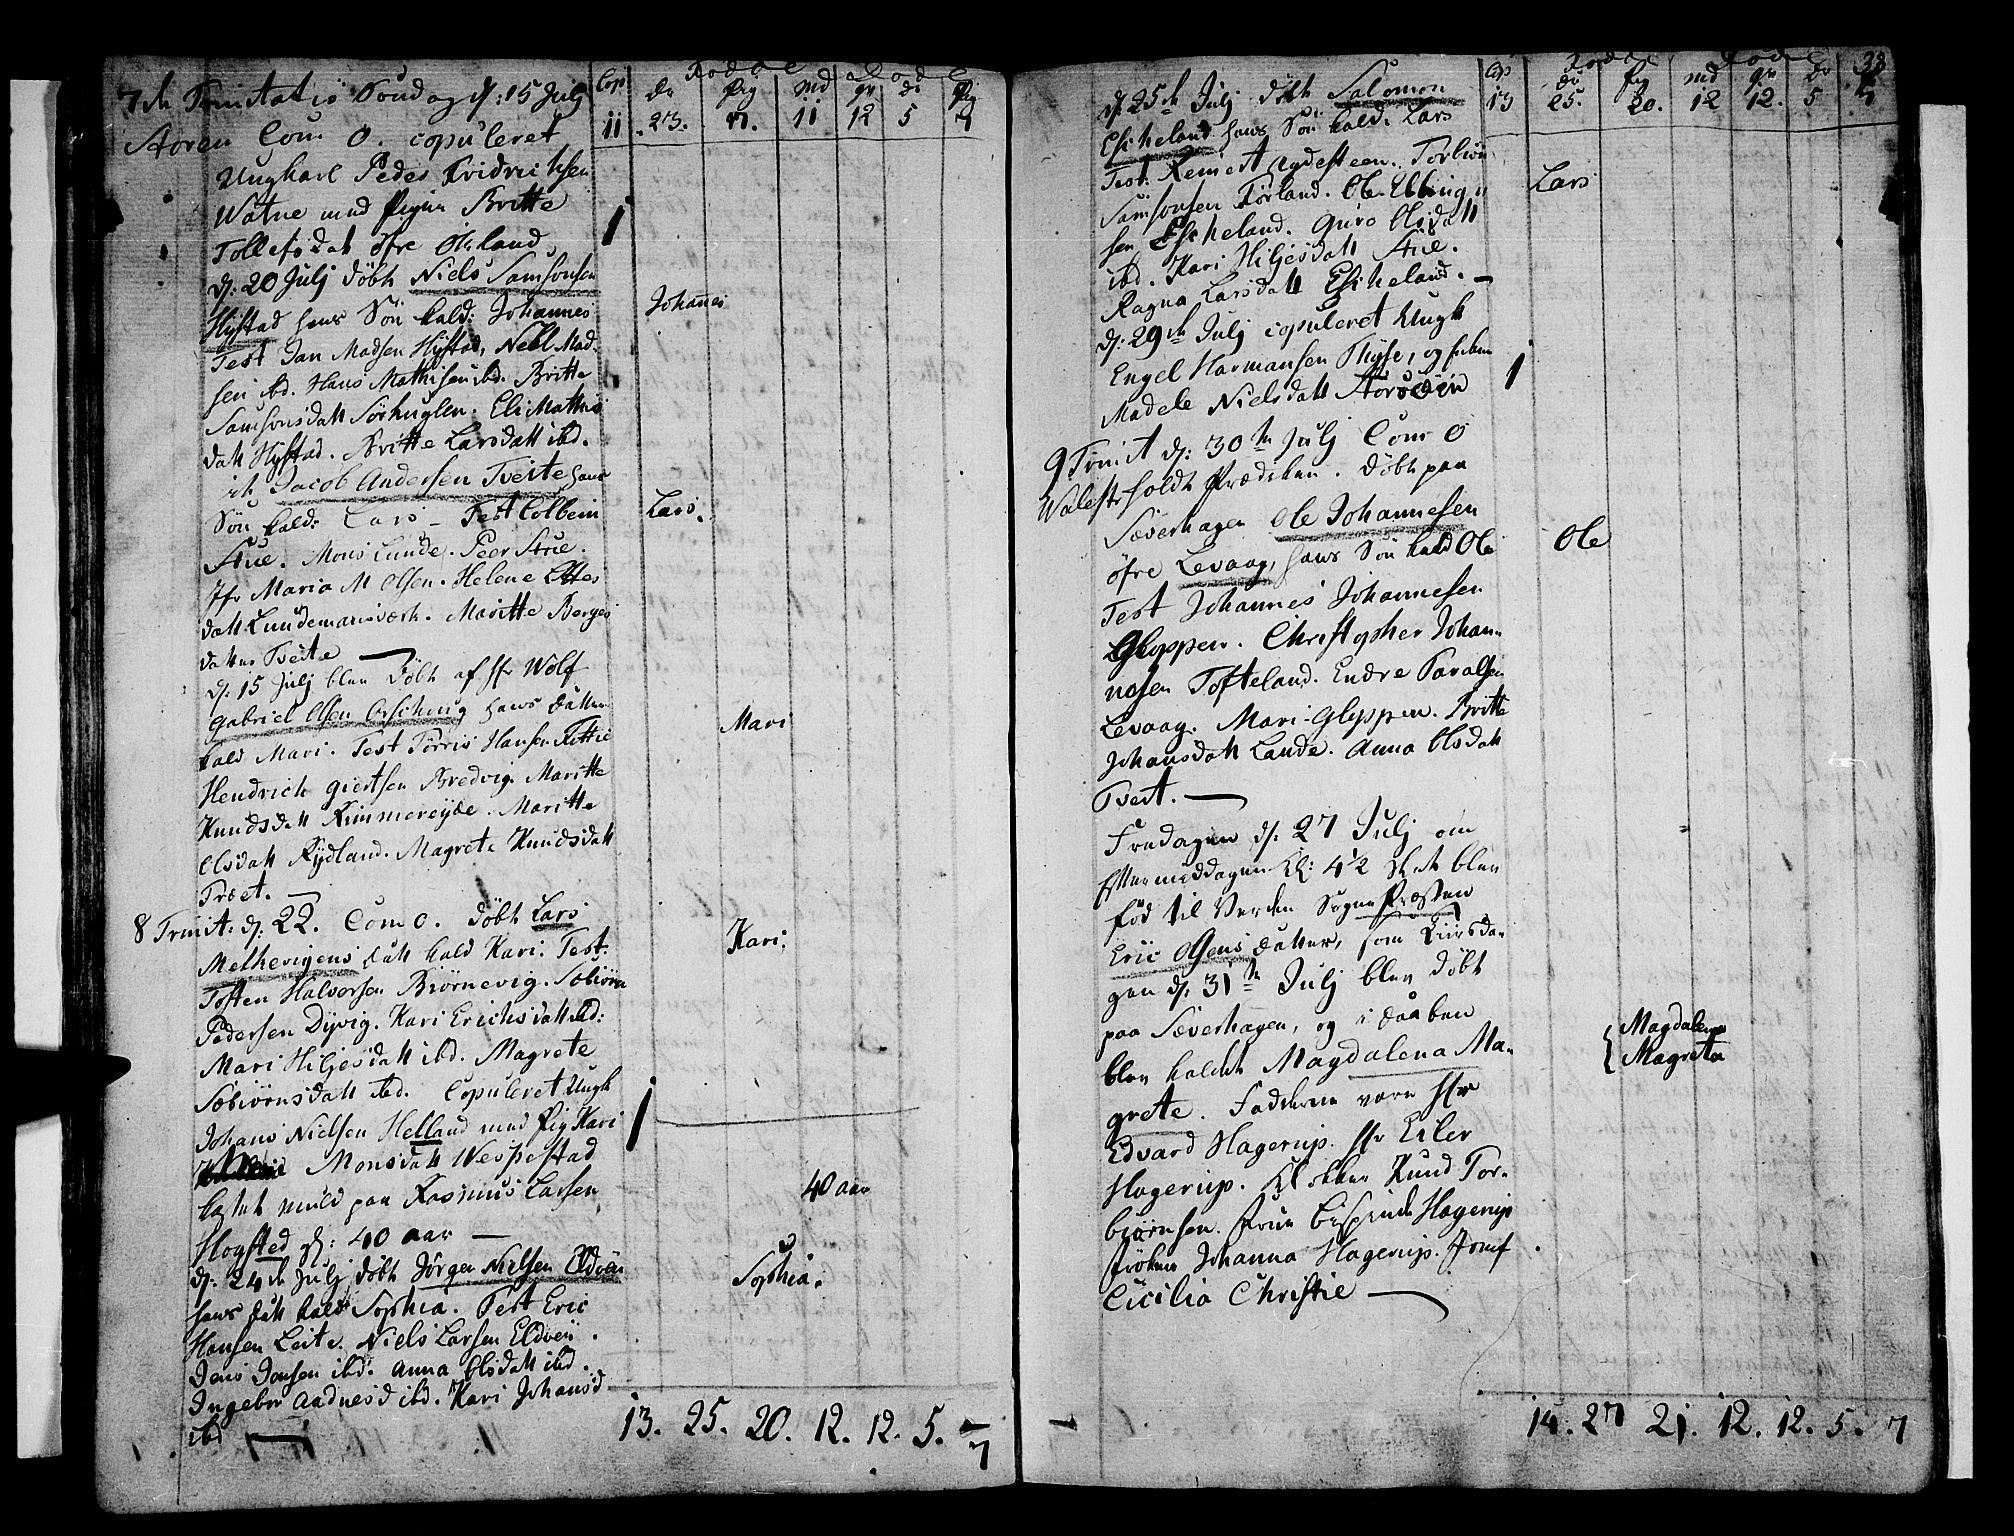 7de Trinitatis Søndag d: 15 Julj
Aaren Com 0. copuleret
Ungkarl Peder Fridrichsen
Watne med Pigen Britte
Tollefsdatt øfre Økland
d: 20 Julj døbt Niels Samsonsen
Hystad hans Søn kald: Johannes
Test Jan Madsen Hystad, Nebl Mad-
sen ibd. Hans Mathisen ibd. Britte
Samsonsdatt Sørhuglen. Eli Mathis
datt Hystad. Britte Larsdatt ibd.
it Jacob Andersen Tveite hans
Søn kald: Lars – Test Colbein
Aue. Mons Lunde. Peer Aue.
Jfr Maria M Olsen. Helene
datt Lundemansværk. Maritte Berges
datter Tveite
d: 15 Julj blev døbt af Hr Wolf
Gabriel Olsen hans datter
kald Mari. Test Tørris Hansen
Hendrich Giertsen Bredvig. Maritte
Knudsdatt Kimmereyde. Maritte
Olsdatt Rydland. Magrete Knudsdatt
Træet.
8 Trinit: d: 22. Com 0. døbt Lars
Melkevigens datt kald Kari. Test:
Tosten Halvorsen Biørnevig. Sæbiørn
Pedersen Dyvig. Kari Erichsdatt ibd:
Mari Hiljesdatt ibd. Magrete
Sæbiørnsdatt ibd. Copuleret Ungk
Johans Nielsen Helland med Pig Kari
Monsdatt Wespestad
kastet muld paa Rasmus Larsen
Hogsted gl: 40 aar
d: 24de Julj døbt Jørgen Nielsen Eldøen
hans datt kald Sophia. Test Eric
Hansen Leite. Niels Larsen Eldøen.
Jens Jansen ibd. Anna Olsdatt ibd.
Ingebor Aadnesd ibd. Kari Johansd
ibd
Cop Fødde Døde
Dr Pig Md Qv Dr Pig
11 23. 17. 11 12 5 7
1
Johannes
Lars.
Mari
Kari.
1
40 aar
Sophia.
13. 25. 20. 12. 12. 5. 7
d: 25de Julj døbt Salomon
Eskeland hans Søn kald: Lars
Test: Reinert Agdesteen. Torbiørn
Samsonsen Førland. Ole Elling
sen Eskeland. Guro Olsdatt
ibd. Kari Hiljesdatt Aue.
Ragna Larsdatt Eskeland.
d: 29de Julj copuleret Ungk
Engel Harmansen Thyse, og Enken
Madele Nielsdatt Storøen
9 Trinit d: 30te Julj Com 0
Walestr holdt Prædiken. døbt paa
Sæverhagen Ole Johannesen
øfre Levaag, hans Søn kald Ole
Test Johannes Johannesen
Gloppen. Christopher Johan-
nesen Tofteland. Endre Pavalsen
Levaag. Mari Gloppen. Britte
Johansdatt Lande. Anna Olsdatt
Tveit.
Fredagen d: 27 Julj om
Eftermiddagen Kl: 4½ Slet blev
fød til Verden Sogne Præsten
Eric Olsens datter, som Tiirsda-
gen d: 31te Julj blev døbt
paa Sæverhagen, og i daaben
blev kaldet Magdalena Ma-
grete. Fadderne vare Hr
Edvard Hagerup. Hr Eiler
Hagerup. Klokker Knud Tor-
biørnsen. Frue Bispinde Hagerup
Frøken Johanna Hagerup. Jomf
Cicilia Christie
38
Cop Fødde Døde
Dr Pig Md Qv Dr
13 25. 20. 12 12. 5 7
Lars
1
Ole
Magdalena
Magreta
14. 27 21. 12. 12. 5. 7